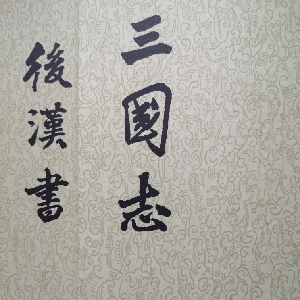 三國志
後漢書